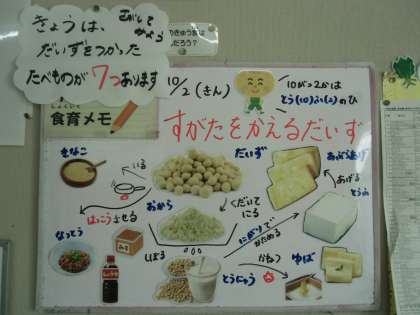 きょうは、
さがして
みよう
だいずをつかった
たべものが7つあります
のきゅうしょくは
んだろう?
10/2(きん)
10がつ2かは
とう(10)ふ(2)のひ
しょくいく
食育メモ
すがたをかえるだいず
きなこ
いる
だいず
あぶらあげ
あげる
とうふ
はっこうさせる
おから
くだいて
にる
なっとう
みそ
しょうゆ
しぼる
にがりで
かためる
とうにゅう
かねつ
ゆば